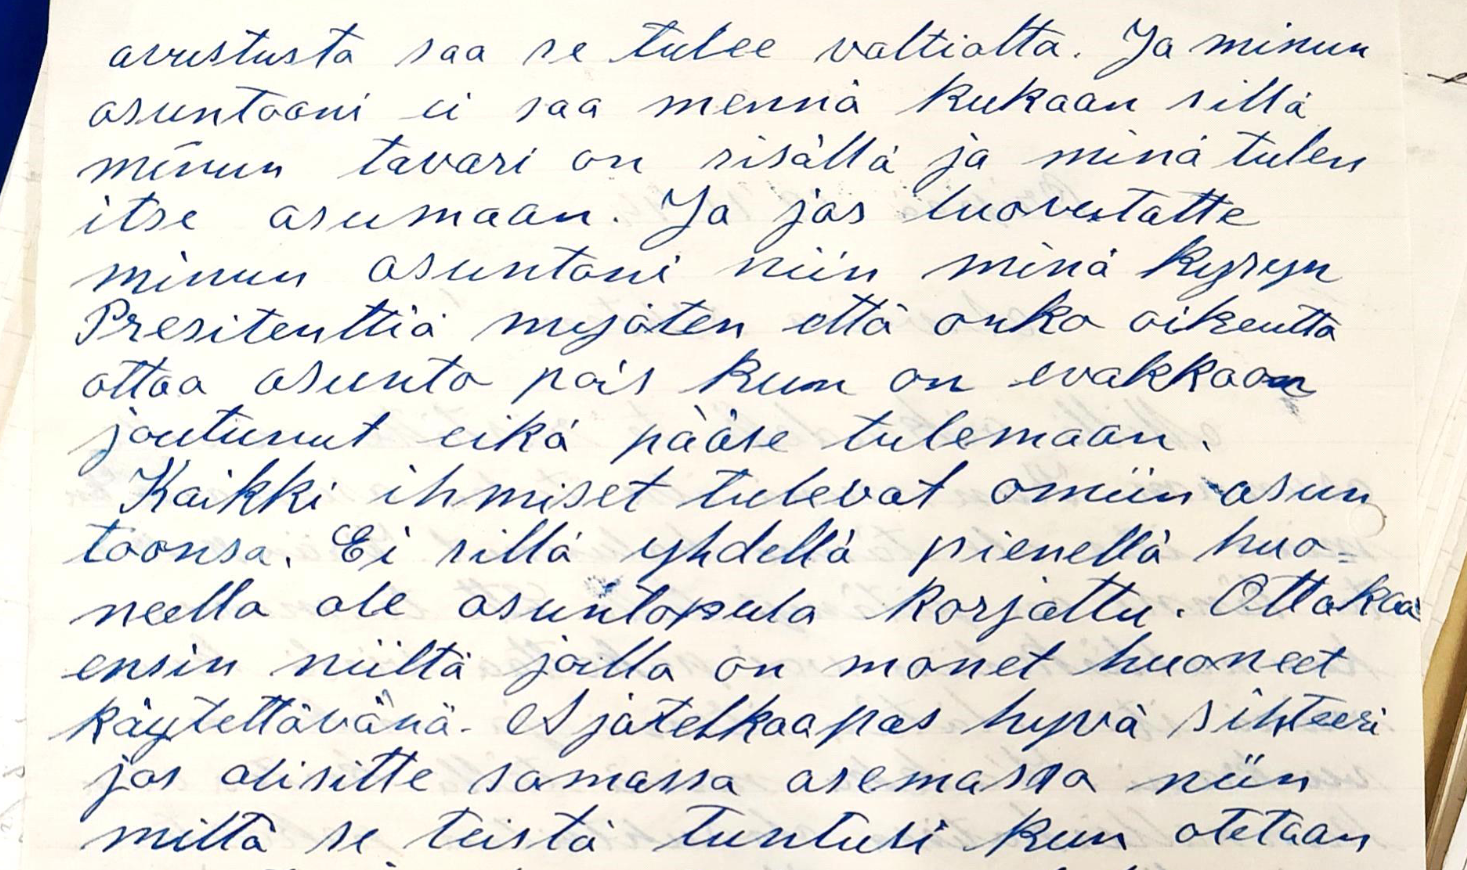 avustusta saa se tulee valtiolta. Ja minun
asuntooni ei saa mennä kukaan sillä
minun tavari on sisällä ja minä tulen
itse asumaan. Ja jos luovutatte
minun asuntoni niin minä kysyn
Presitenttiä myöten että onko oikeutta
ottaa asunto pois kun on evakkoon
joutunut eikä pääse tulemaan.
Kaikki ihmiset tulevat omiin asun
toonsa. Ei sillä yhdellä pienellä huo=
neella ole asuntopula korjattu. Ottakaa
ensin niiltä joilla on monet huoneet
käytettävänä. Ajatelkaapas hyvä sihteeri
jos olisitte samassa asemassa niin
miltä se teistä tuntusi kun otetaan